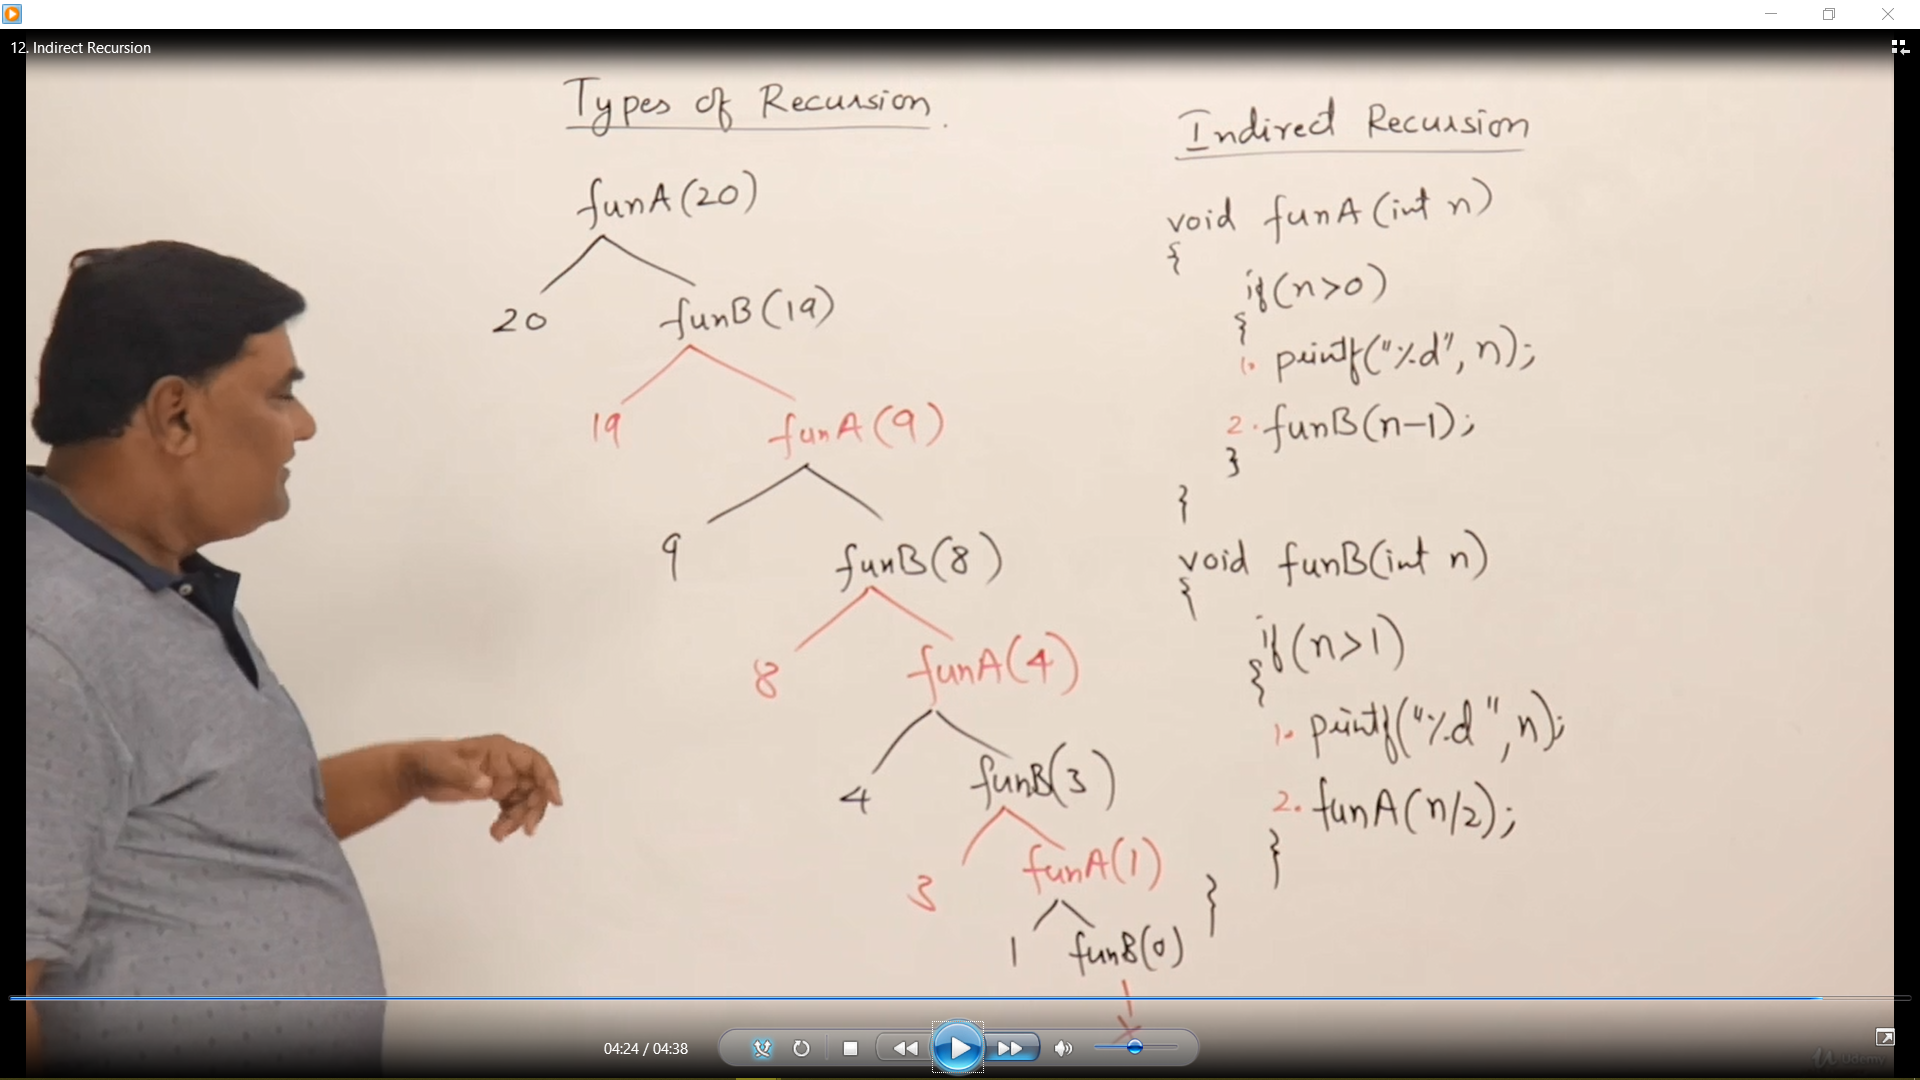 12. Indirect Recursion
Types of Recursion.
funA(20)
20 funB(19)
19 funA(9)
9 funB(8)
8 funA(4)
4 funB(3)
3 funA(1)
1 funB(0)
Indirect Recursion
void funA(int n)
{
if(n>0)
{
1. printf("%d", n);
2. funB(n-1);
}
}
void funB(int n)
{
if(n>1)
{
1. printf("%d", n);
2. funA(n/2);
}
}
04:24 / 04:38
Udemy